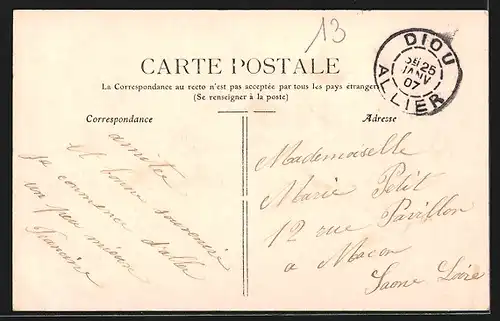 13
DIOU
5E 25
JANV
07
ALLIER
CARTE POSTALE
La Correspondance au recto n'est pas acceptée par tous les pays étranger
(Se renseigner à la poste)
Correspondance
Adresse
amitié
et bonne souvenir
je commence d'aller
un peu mieux
Francine
Mademoiselle
Marie Petit
12 rue Pavillon
a Macon
Saone Loire